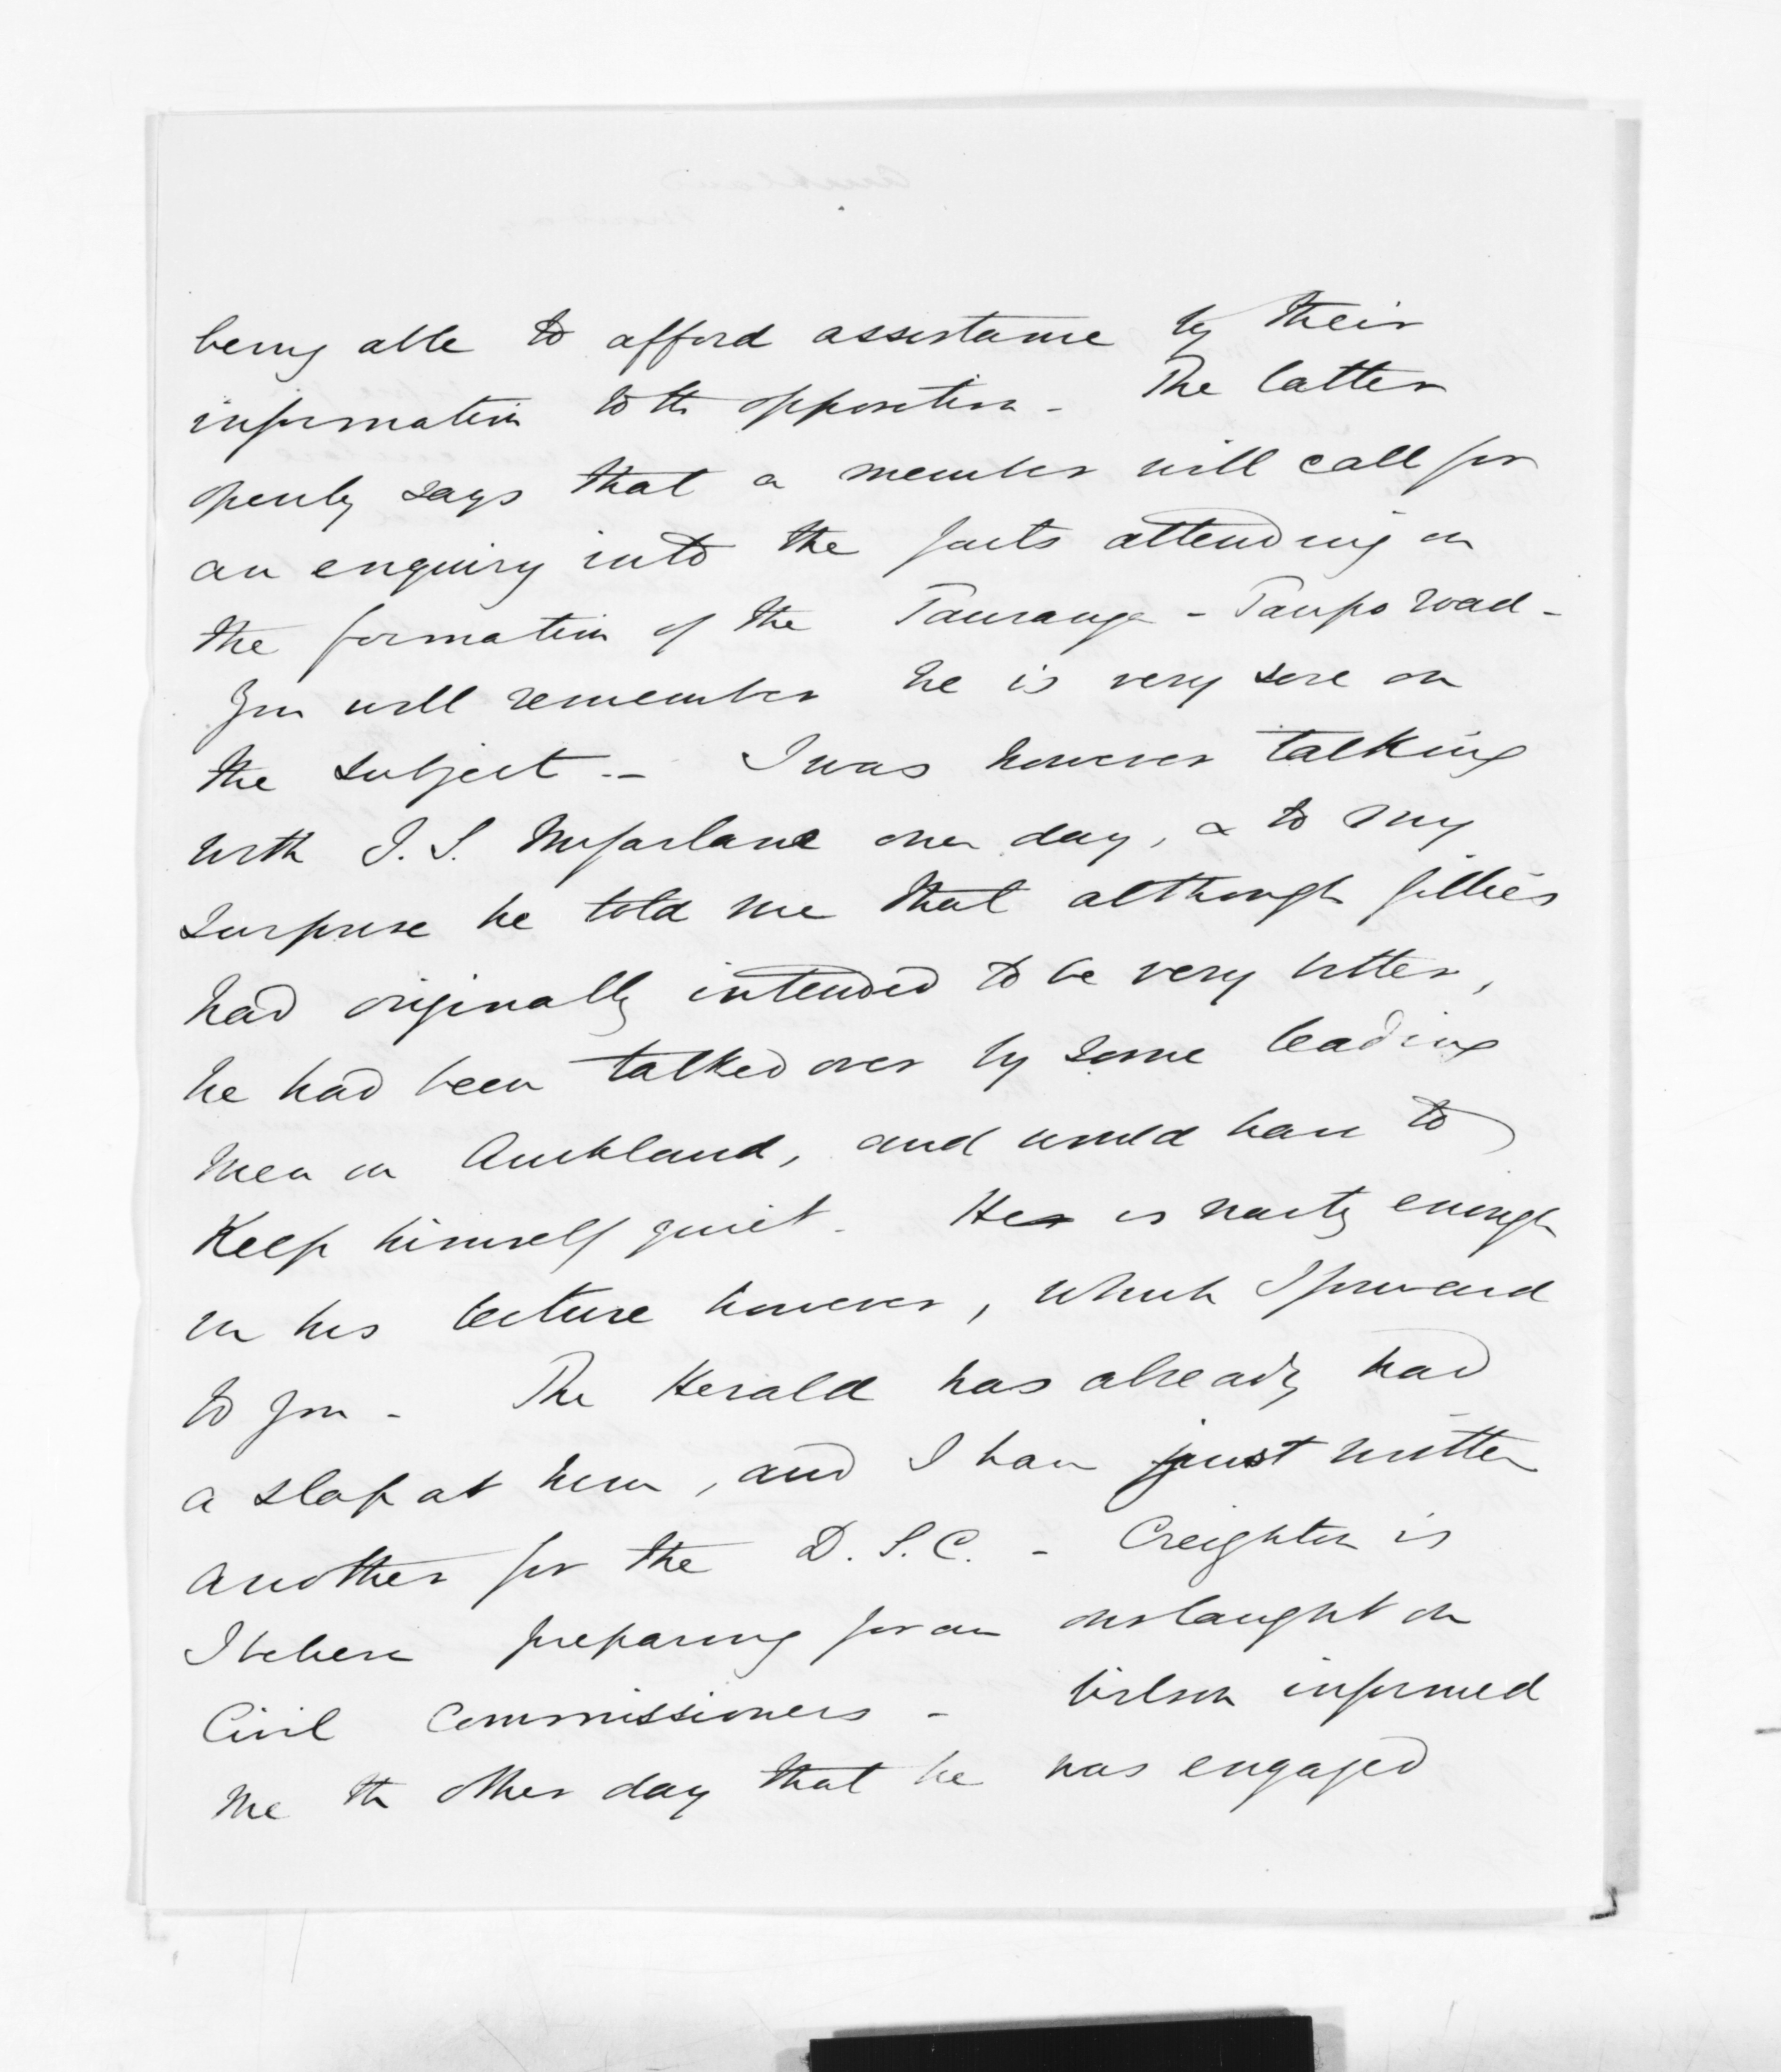 being able to afford assistance by their
information to the opposition - The latter
openly says that a member will call for
an enquiry into the facts attending on
the formation of the Tauranga - Taupo road -
You will remember he is very sore on
the subject. - I was however talking
with J. S. McFarlane one day, & to my
surprise he told me that although Gillies
had originally intended to be very bitter,
he had been talked over by some leading
men in Auckland, and would have to
keep himself quiet. He is nasty enough
in his lecture however, which I forward
to you - The Herald has already had
a slap at him, and I have just written
another for the D. S. C. - Creighton is
I believe preparing for an onslaught on
Civil Commissioners - Wilson informed
me the other day that he was engaged